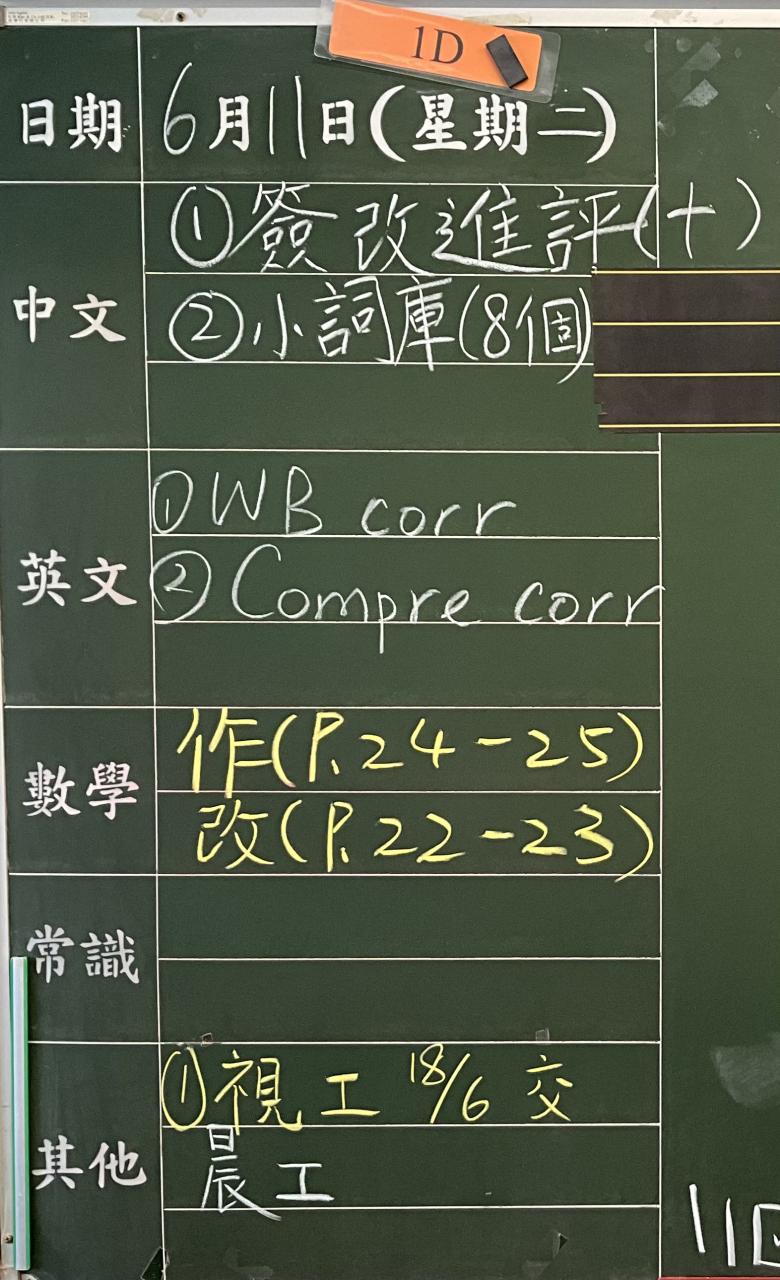 1D
日期 6月11日(星期二)
中文
①簽改進評(十)
②小詞庫(8個)
英文
①WB corr
②Compre corr
數學
作(P.24-25)
改(P.22-23)
常識
其他
①視工 18/6 交
晨工